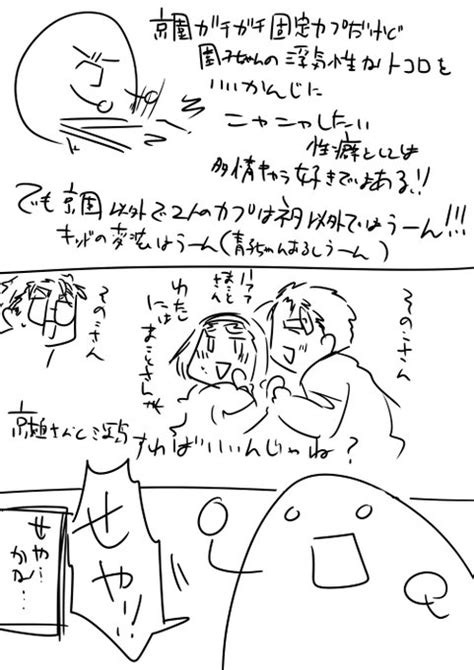 京園ガチガチ固定カプだけど
園子ちゃんの浮気性なトコロを
いいかんじに
ニャニャしたい
性癖としては
多情キャラ好きではある!!
でも京園以外で2人のカプは初以外ではうーん!!!
キッドの変装はうーん(青子ちゃんあるしうーん)
そのこさん
ダメ
まこと
さん
わたし
には
まことさんが
そのこさん
京極さんと浮気
すればいいんじゃね?
せや!!
せや…
かな…